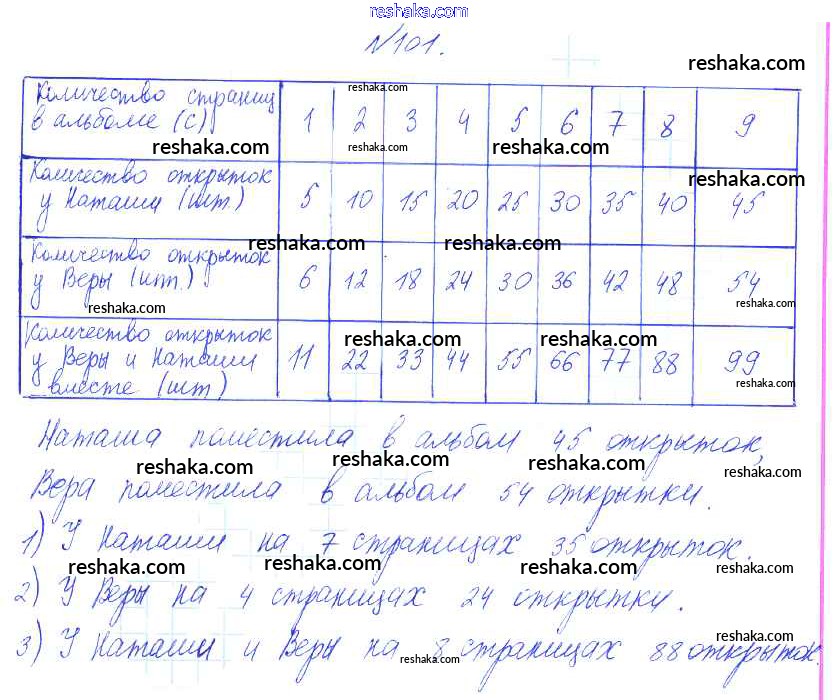 reshaka.com
№101.
reshaka.com
Количество страниц
в альбоме (с) 1 2 3 4 5 6 7 8 9
reshaka.com
reshaka.com reshaka.com reshaka.com
Количество открыток
у Наташи (шт) 5 10 15 20 25 30 35 40 45
reshaka.com
reshaka.com reshaka.com
Количество открыток
у Веры (шт.) 6 12 18 24 30 36 42 48 54
reshaka.com reshaka.com
Количество открыток
у Веры и Наташи 11 22 33 44 55 66 77 88 99
вместе (шт)
reshaka.com reshaka.com reshaka.com
Наташа поместила в альбом 45 открыток,
reshaka.com reshaka.com reshaka.com reshaka.com
Вера поместила в альбом 54 открытки.
1) У Наташи на 7 страницах 35 открыток.
reshaka.com reshaka.com reshaka.com reshaka.com
2) У Веры на 4 страницах 24 открытки.
3) У Наташи и Веры на 8 страницах 88 открыток.
reshaka.com reshaka.com